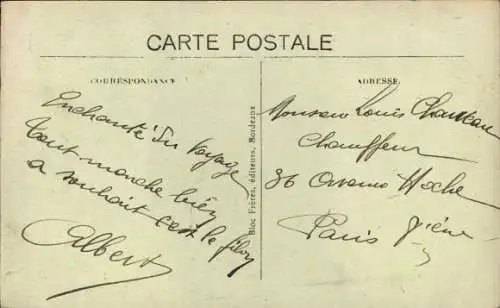 CARTE POSTALE
CORRESPONDANCE
ADRESSE
Enchanté du Voyage
tout marche bien
a souhait c'est le filon
Albert
Bloc Frères, éditeurs, Bordeaux
Monsieur Louis
Chauffeur
36 Avenue Hoche
Paris